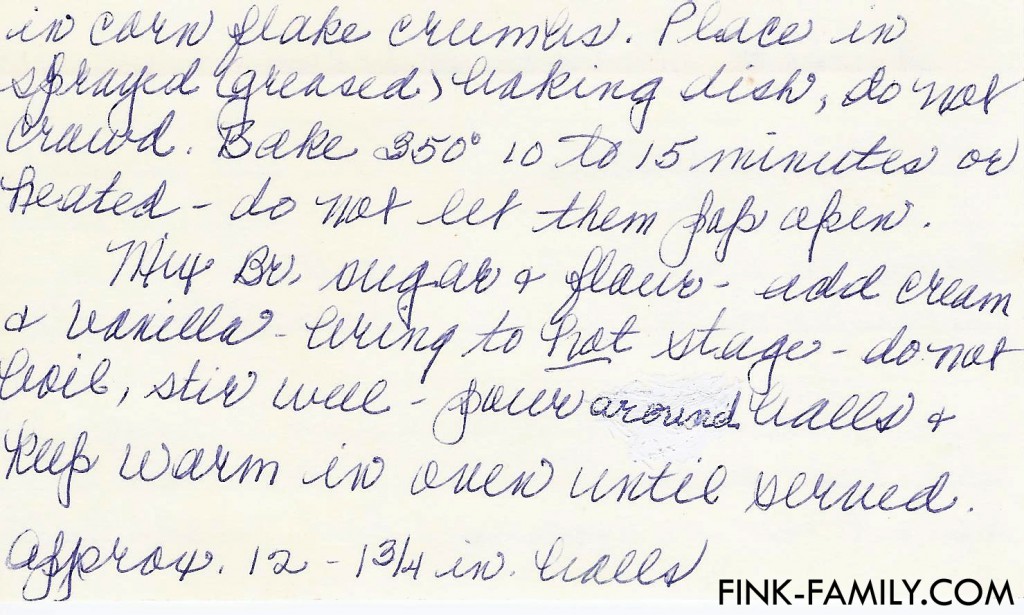 in corn flake crumbs. Place in
sprayed (greased) baking dish, do not
crowd. Bake 350° 10 to 15 minutes or
heated - do not let them pop open.
Mix Br. sugar & flour - add cream
& vanilla - bring to hot stage - do not
boil, stir well - pour around balls &
keep warm in oven until served.
Approx. 12 - 1 3/4 in. balls
FINK-FAMILY.COM